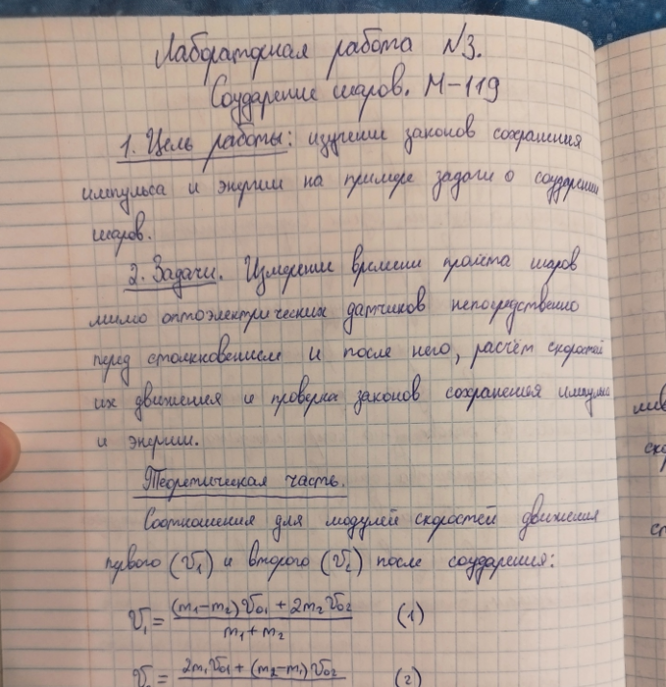 Лабораторная работа №3.
Соударение шаров. М-119
1. Цель работы: изучение законов сохранения
импульса и энергии на примере задачи о соударении
шаров.
2. Задачи. Измерение времени пролёта шаров
мимо оптоэлектрических датчиков непосредственно
перед столкновением и после него, расчёт скоростей
их движения и проверка законов сохранения импульса
и энергии.
Теоретическая часть.
Соотношения для модулей скоростей движения
первого (V₁) и второго (V₂) после соударения:
V₁ = ((m₁-m₂)V₀₁ + 2m₂V₀₂) / (m₁+m₂) (1)
2m₁V₀₁ + (m₂-m₁)V₀₂ (2)